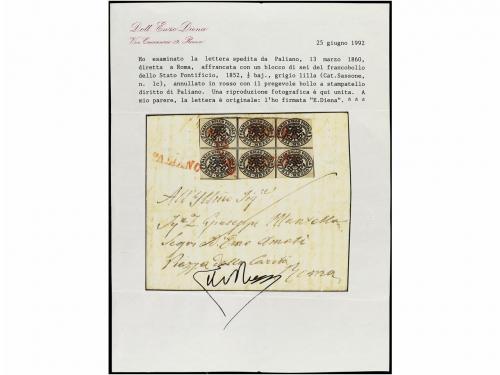 Dott. Enzo Diena
Via Crescenzio 19, Roma
25 giugno 1992
Ho esaminato la lettera spedita da Paliano, 13 marzo 1860,
diretta a Roma, affrancata con un blocco di sei del francobollo
dello Stato Pontificio, 1852, ½ baj., grigio lilla (Cat.Sassone,
n. 1c), annullato in rosso con il pregevole bollo a stampatello
diritto di Paliano. Una riproduzione fotografica è qui unita. A
mio parere, la lettera è originale: l'ho firmata "E.Diena". ^ ^ ^
PALIANO
All' Illmo Sigre
Giuseppe
Piazza della Carità
Roma